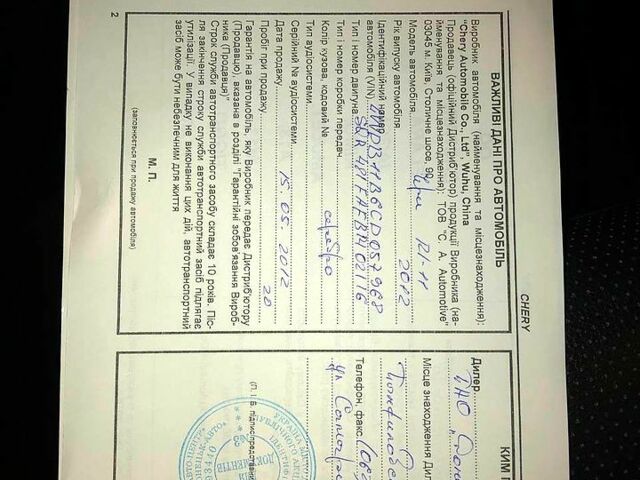 CHERY
ВАЖЛИВІ ДАНІ ПРО АВТОМОБІЛЬ
Виробник автомобіля (найменування та місцезнаходження):
"Chery Automobile Co., Ltd", Wuhu, China
Продавець (офіційний Дистриб'ютор) продукції Виробника (на-
йменування та місцезнаходження): ТОВ "С. А. Automotive"
03045 м. Київ, Столичне шосе, 90
Модель автомобіля Chery A-11
Рік випуску автомобіля 2012
Ідентифікаційний номер
автомобіля (VIN)
Тип і номер двигуна SQR
Тип і номер коробки передач
Колір кузова, кодовий № серебро
Тип аудіосистеми
Серійний № аудіосистеми
Дата продажу 15.05.2012
Пробіг при продажу 20
Гарантія на автомобіль, яку Виробник передає Дистриб'ютору
(Продавцю), вказана в розділі "Гарантійні зобов'язання Вироб-
ника (Продавця)"
Строк служби автотранспортного засобу складає 10 років. Піс-
ля закінчення строку служби автотранспортний засіб підлягає
утилізації. У випадку не виконання цих дій, автотранспортний
засіб може бути небезпечним для життя
М. П.
(заповнюється при продажу автомобіля)
2
КИМ П
Дилер
Місце знаходження Дил
Телефон, факс (06
(П. І. Б. підпис представни
УКРАЇНА
ДОКУМЕНТІВ